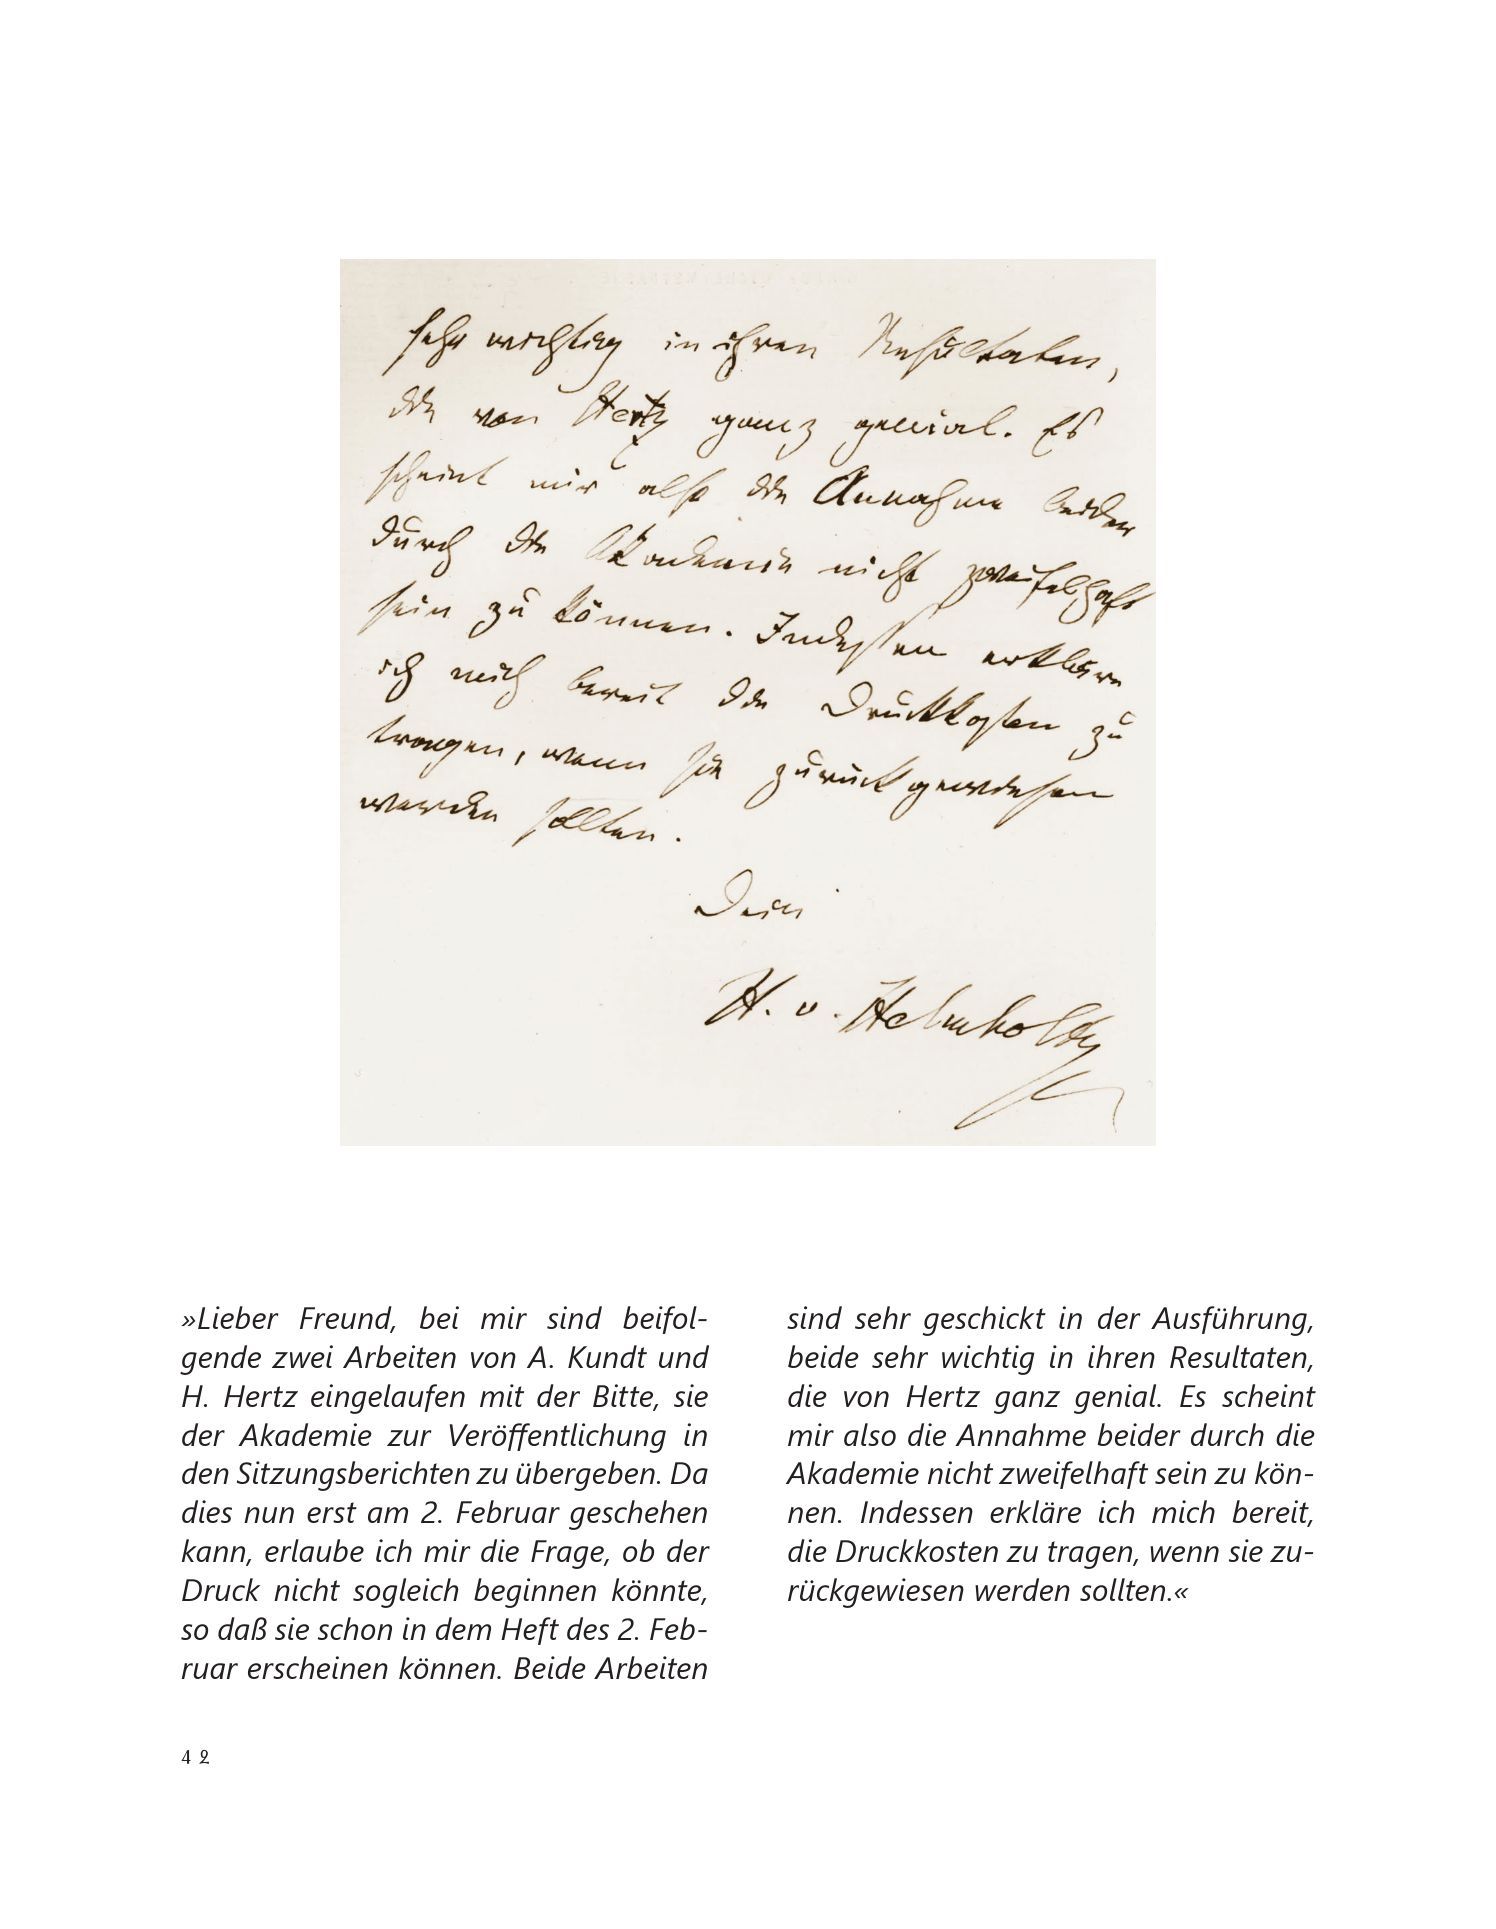 sehr wichtig in ihren Resultaten,
die von Hertz ganz genial. Es
scheint mir also die Annahme beider
durch die Akademie nicht zweifelhaft
sein zu können. Indessen erkläre
ich mich bereit die Druckkosten zu
tragen, wenn sie zurückgewiesen
werden sollten.
Dein
H. v. Helmholtz
»Lieber Freund, bei mir sind beifol-
gende zwei Arbeiten von A. Kundt und
H. Hertz eingelaufen mit der Bitte, sie
der Akademie zur Veröffentlichung in
den Sitzungsberichten zu übergeben. Da
dies nun erst am 2. Februar geschehen
kann, erlaube ich mir die Frage, ob der
Druck nicht sogleich beginnen könnte,
so daß sie schon in dem Heft des 2. Feb-
ruar erscheinen können. Beide Arbeiten
sind sehr geschickt in der Ausführung,
beide sehr wichtig in ihren Resultaten,
die von Hertz ganz genial. Es scheint
mir also die Annahme beider durch die
Akademie nicht zweifelhaft sein zu kön-
nen. Indessen erkläre ich mich bereit,
die Druckkosten zu tragen, wenn sie zu-
rückgewiesen werden sollten.«
42